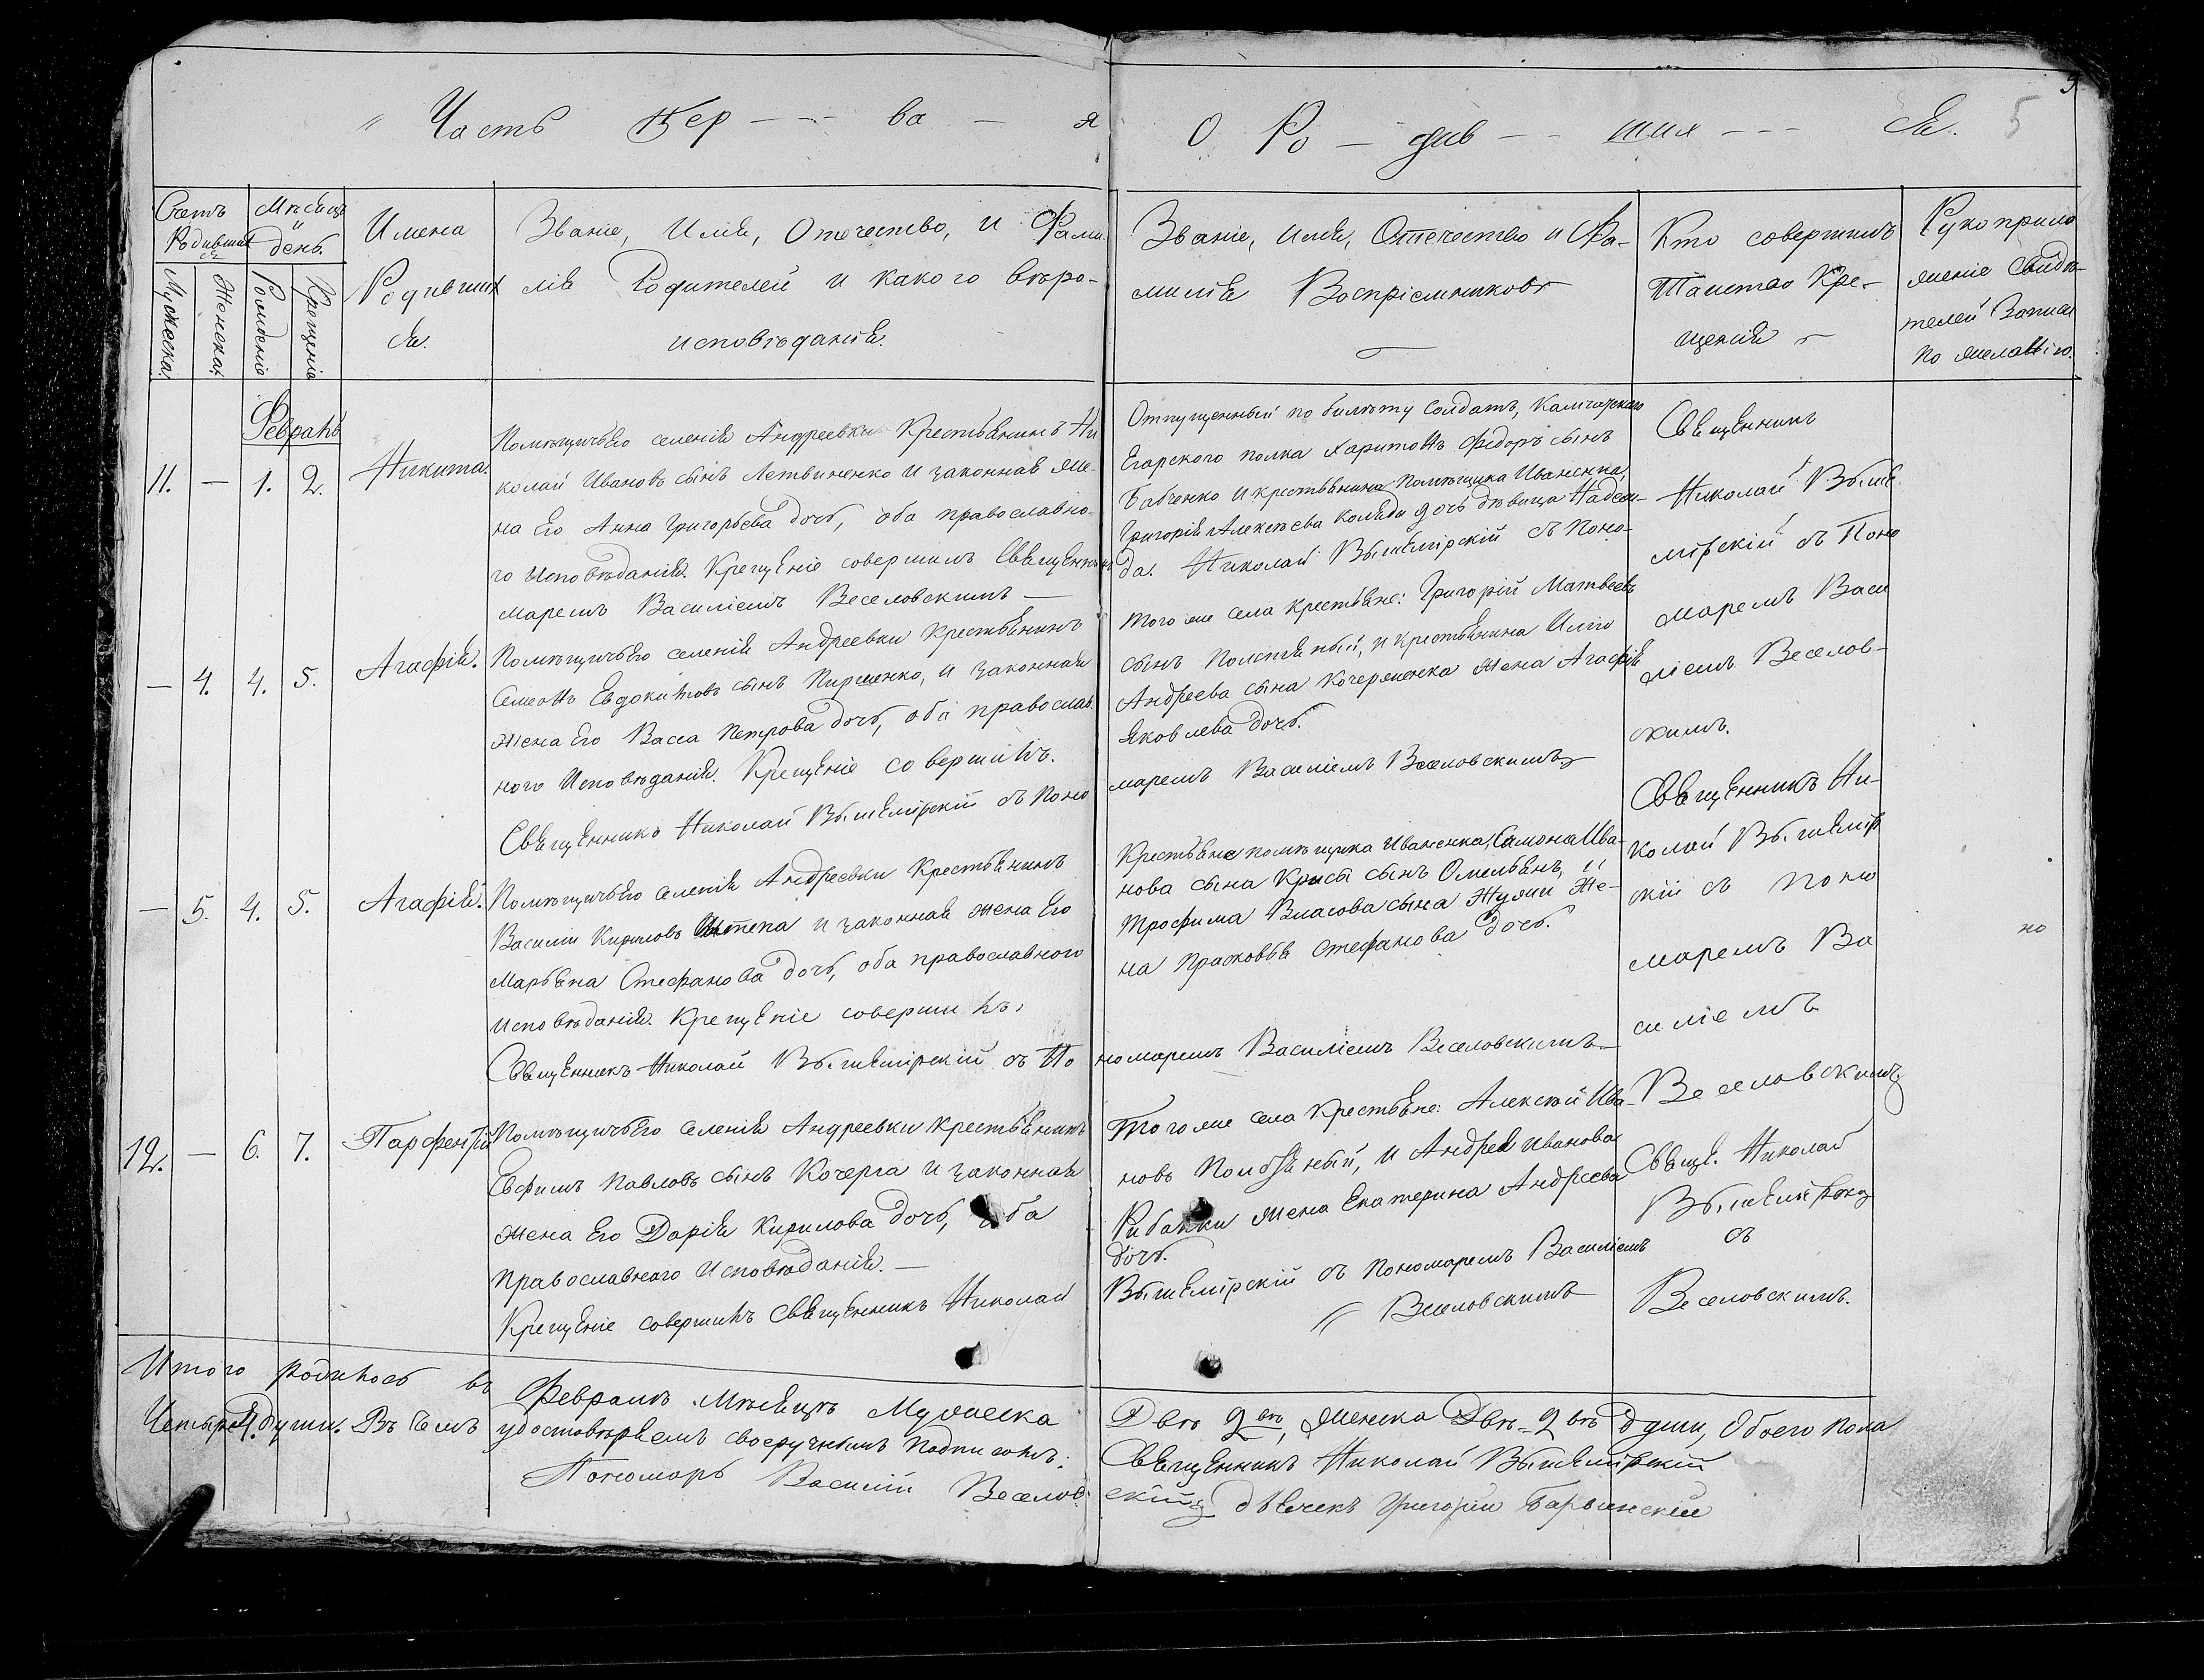 Часть Пер - - - ва - я
О Ро - див - - ших - - - ся. 5
Счетъ Родившихся
Мѣсяцъ и день.
Мужеска.
Женска.
Рожденія
Крещенія
Имена
Родивших
ся.
Званіе, Имя, Отечество, и Фами
лія Родителей и какого вѣро-
исповѣданія.
Званіе, имя, Отечество и Фа-
милія Воспріемниковъ
Кто совершилъ
Таинство Кре-
щенія
Рукоприло
женіе свидѣ-
телей записи
по желанію.
Февраль
11. — 1. 2. Никита.
Помѣщичьяго селенія Андреевки Крестьянинъ Ни
колай Ивановъ сынъ Летвиненко и законная же-
на его Анна Григорьева дочь, оба православно-
го исповѣданія. Крещеніе совершилъ Священникъ
Отпущенный по билѣту Солдатъ, Камчатского
Егарского полка Харитонъ Федоръ сынъ
Бабченко и крестьянина Помѣщика Иваненка
Григорія Алексѣева дочь дѣвица Надеж-
да. Николай Вышемірскій съ Поно-
маремъ Василіемъ Веселовскимъ —
Священникъ
Николай Выше
мірскій съ Поно
маремъ Васи
ліемъ Веселов-
скимъ.
— 4. 4. 5. Агафія.
Помѣщичьяго селенія Андреевки Крестьянинъ
Семеонъ Евдокимовъ сынъ Пирженко, и законная
жена Его Васса Петрова дочь, оба православ
ного Исповѣданія. Крещеніе совершилъ.
Священникъ Николай Вышемірскій съ Поно
Того же села крестьяне: Григорій Матвеевъ
сынъ и крестьянина Илiи
Андреева сына Кочерженка жена Агафія
Яковлева дочь.
маремъ Василіемъ Веселовскимъ
Священникъ Ни-
колай Вышемір
скій съ поно
маремъ Ва
силіемъ
Веселовскимъ
— 5. 4. 5. Агафія.
Помѣщичьяго селенія Андреевки Крестьянинъ
Василій Кириловъ и законная жена Его
Марьяна Стефанова дочь, оба православного
исповѣданія. Крещеніе совершилъ,
Священникъ Николай Вышемірскій съ По
Крестьяне помѣщика Иваненка, Самона Ива-
нова сына сынъ Омельянъ, и
Трофима Власова сына же-
на Прасковья Стефанова дочь.
номаремъ Василіемъ Веселовскимъ —
но
12. — 6. 7. Парфентій
Помѣщичьяго селенія Андреевки крестьянинъ
Евфимъ Павловъ сынъ Кочерга и законная
жена Его Дарія Кирилова дочь, оба
православного Исповѣданія. —
Крещеніе совершилъ Священникъ Николай
Того же села Крестьяне: Алексѣй Ива-
новъ и Андрея Иванова
Рибалки жена Екатерина Андреева
дочь.
Вышемірскій съ Пономаремъ Василіемъ
Веселовскимъ
Свяще. Николай
съ
Веселовскимъ.
Итого родилось въ Февралѣ Мѣсяцѣ Мужеска Двѣ 2 вѣ, женска Двѣ = 2 вѣ души, Обоего пола
Четыре 4. души. Въ чемъ удостовѣряемъ своеручнымъ подписомъ: Священникъ Николай Вышемірскій
Пономарь Василій Веселовскій дьячекъ Григорій